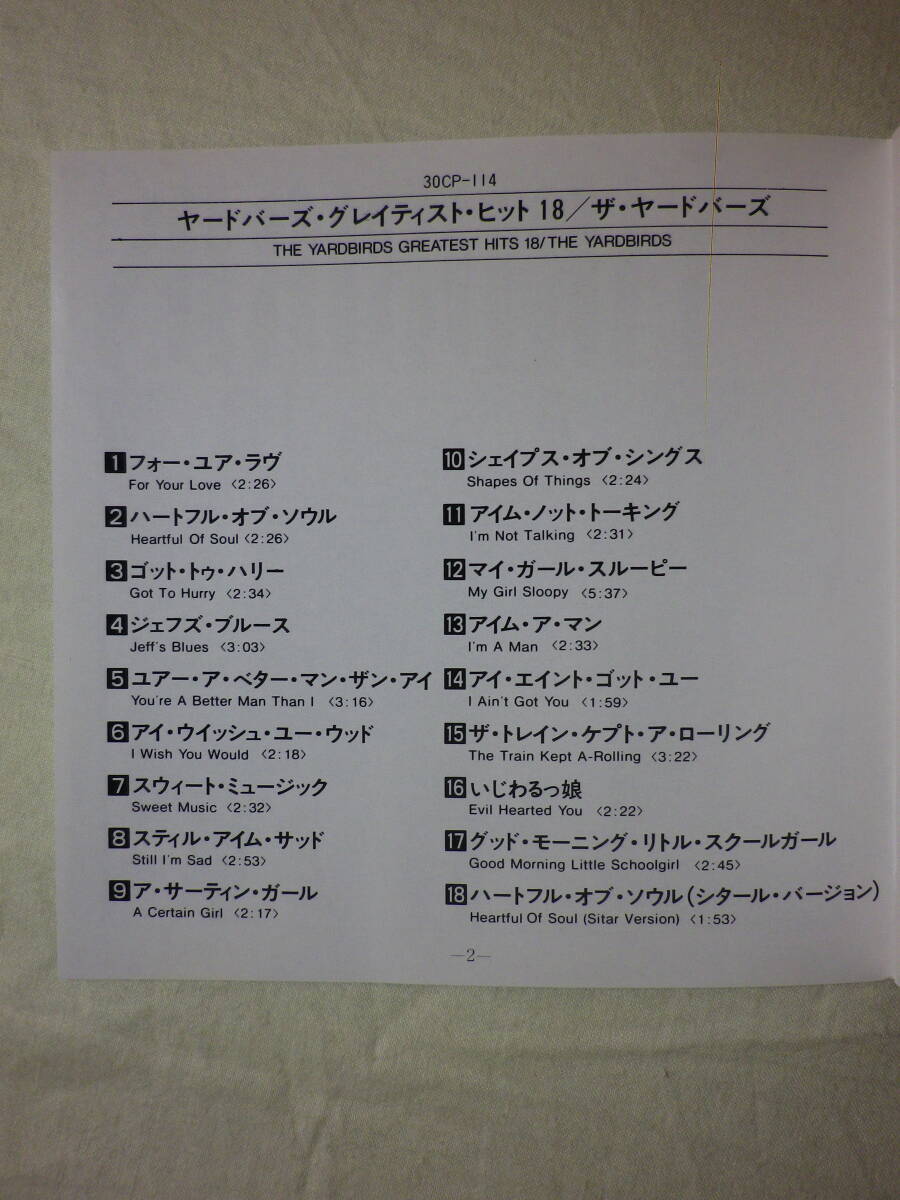 30CP-114
ヤードバーズ・グレイティスト・ヒット 18／ザ・ヤードバーズ
THE YARDBIRDS GREATEST HITS 18/THE YARDBIRDS
1 フォー・ユア・ラヴ
For Your Love 〈2:26〉
2 ハートフル・オブ・ソウル
Heartful Of Soul 〈2:26〉
3 ゴット・トゥ・ハリー
Got To Hurry 〈2:34〉
4 ジェフズ・ブルース
Jeff's Blues 〈3:03〉
5 ユアー・ア・ベター・マン・ザン・アイ
You're A Better Man Than I 〈3:16〉
6 アイ・ウイッシュ・ユー・ウッド
I Wish You Would 〈2:18〉
7 スウィート・ミュージック
Sweet Music 〈2:32〉
8 スティル・アイム・サッド
Still I'm Sad 〈2:53〉
9 ア・サーティン・ガール
A Certain Girl 〈2:17〉
10 シェイプス・オブ・シングス
Shapes Of Things 〈2:24〉
11 アイム・ノット・トーキング
I'm Not Talking 〈2:31〉
12 マイ・ガール・スルーピー
My Girl Sloopy 〈5:37〉
13 アイム・ア・マン
I'm A Man 〈2:33〉
14 アイ・エイント・ゴット・ユー
I Ain't Got You 〈1:59〉
15 ザ・トレイン・ケプト・ア・ローリング
The Train Kept A-Rolling 〈3:22〉
16 いじわるっ娘
Evil Hearted You 〈2:22〉
17 グッド・モーニング・リトル・スクールガール
Good Morning Little Schoolgirl 〈2:45〉
18 ハートフル・オブ・ソウル（シタール・バージョン）
Heartful Of Soul (Sitar Version) 〈1:53〉
—2—